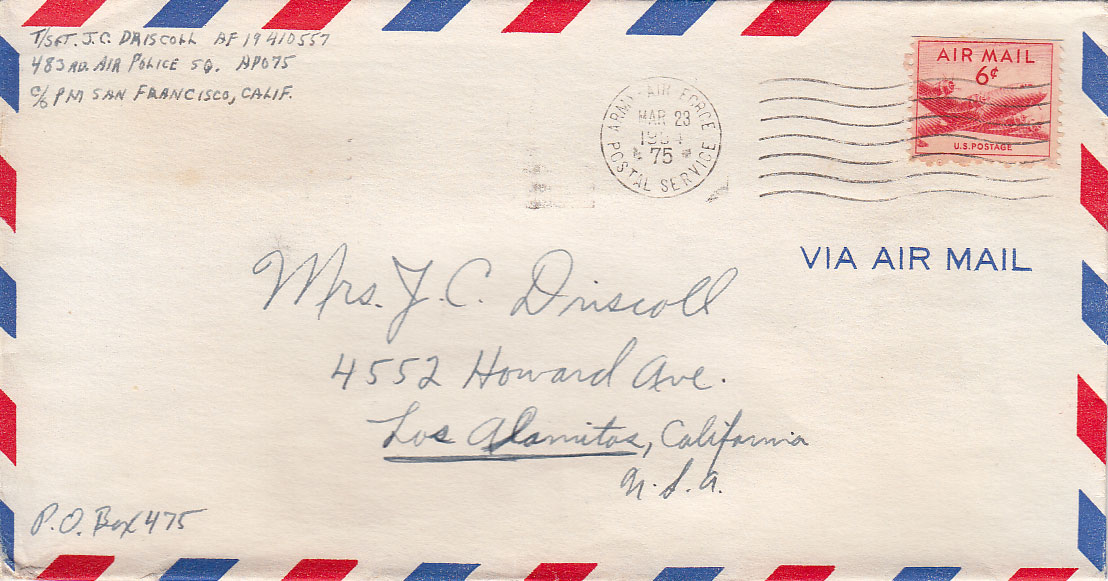 T/SGT. J.C. DRISCOLL AF 19410557
483RD. AIR POLICE SQ. APO75
C/O PM SAN FRANCISCO, CALIF.
ARMY-AIR FORCE
MAR 23
1954
75
POSTAL SERVICE
AIR MAIL
6¢
U.S. POSTAGE
VIA AIR MAIL
Mrs. J. C. Driscoll
4552 Howard Ave.
Los Alamitos, California
U.S.A.
P.O. Box 475